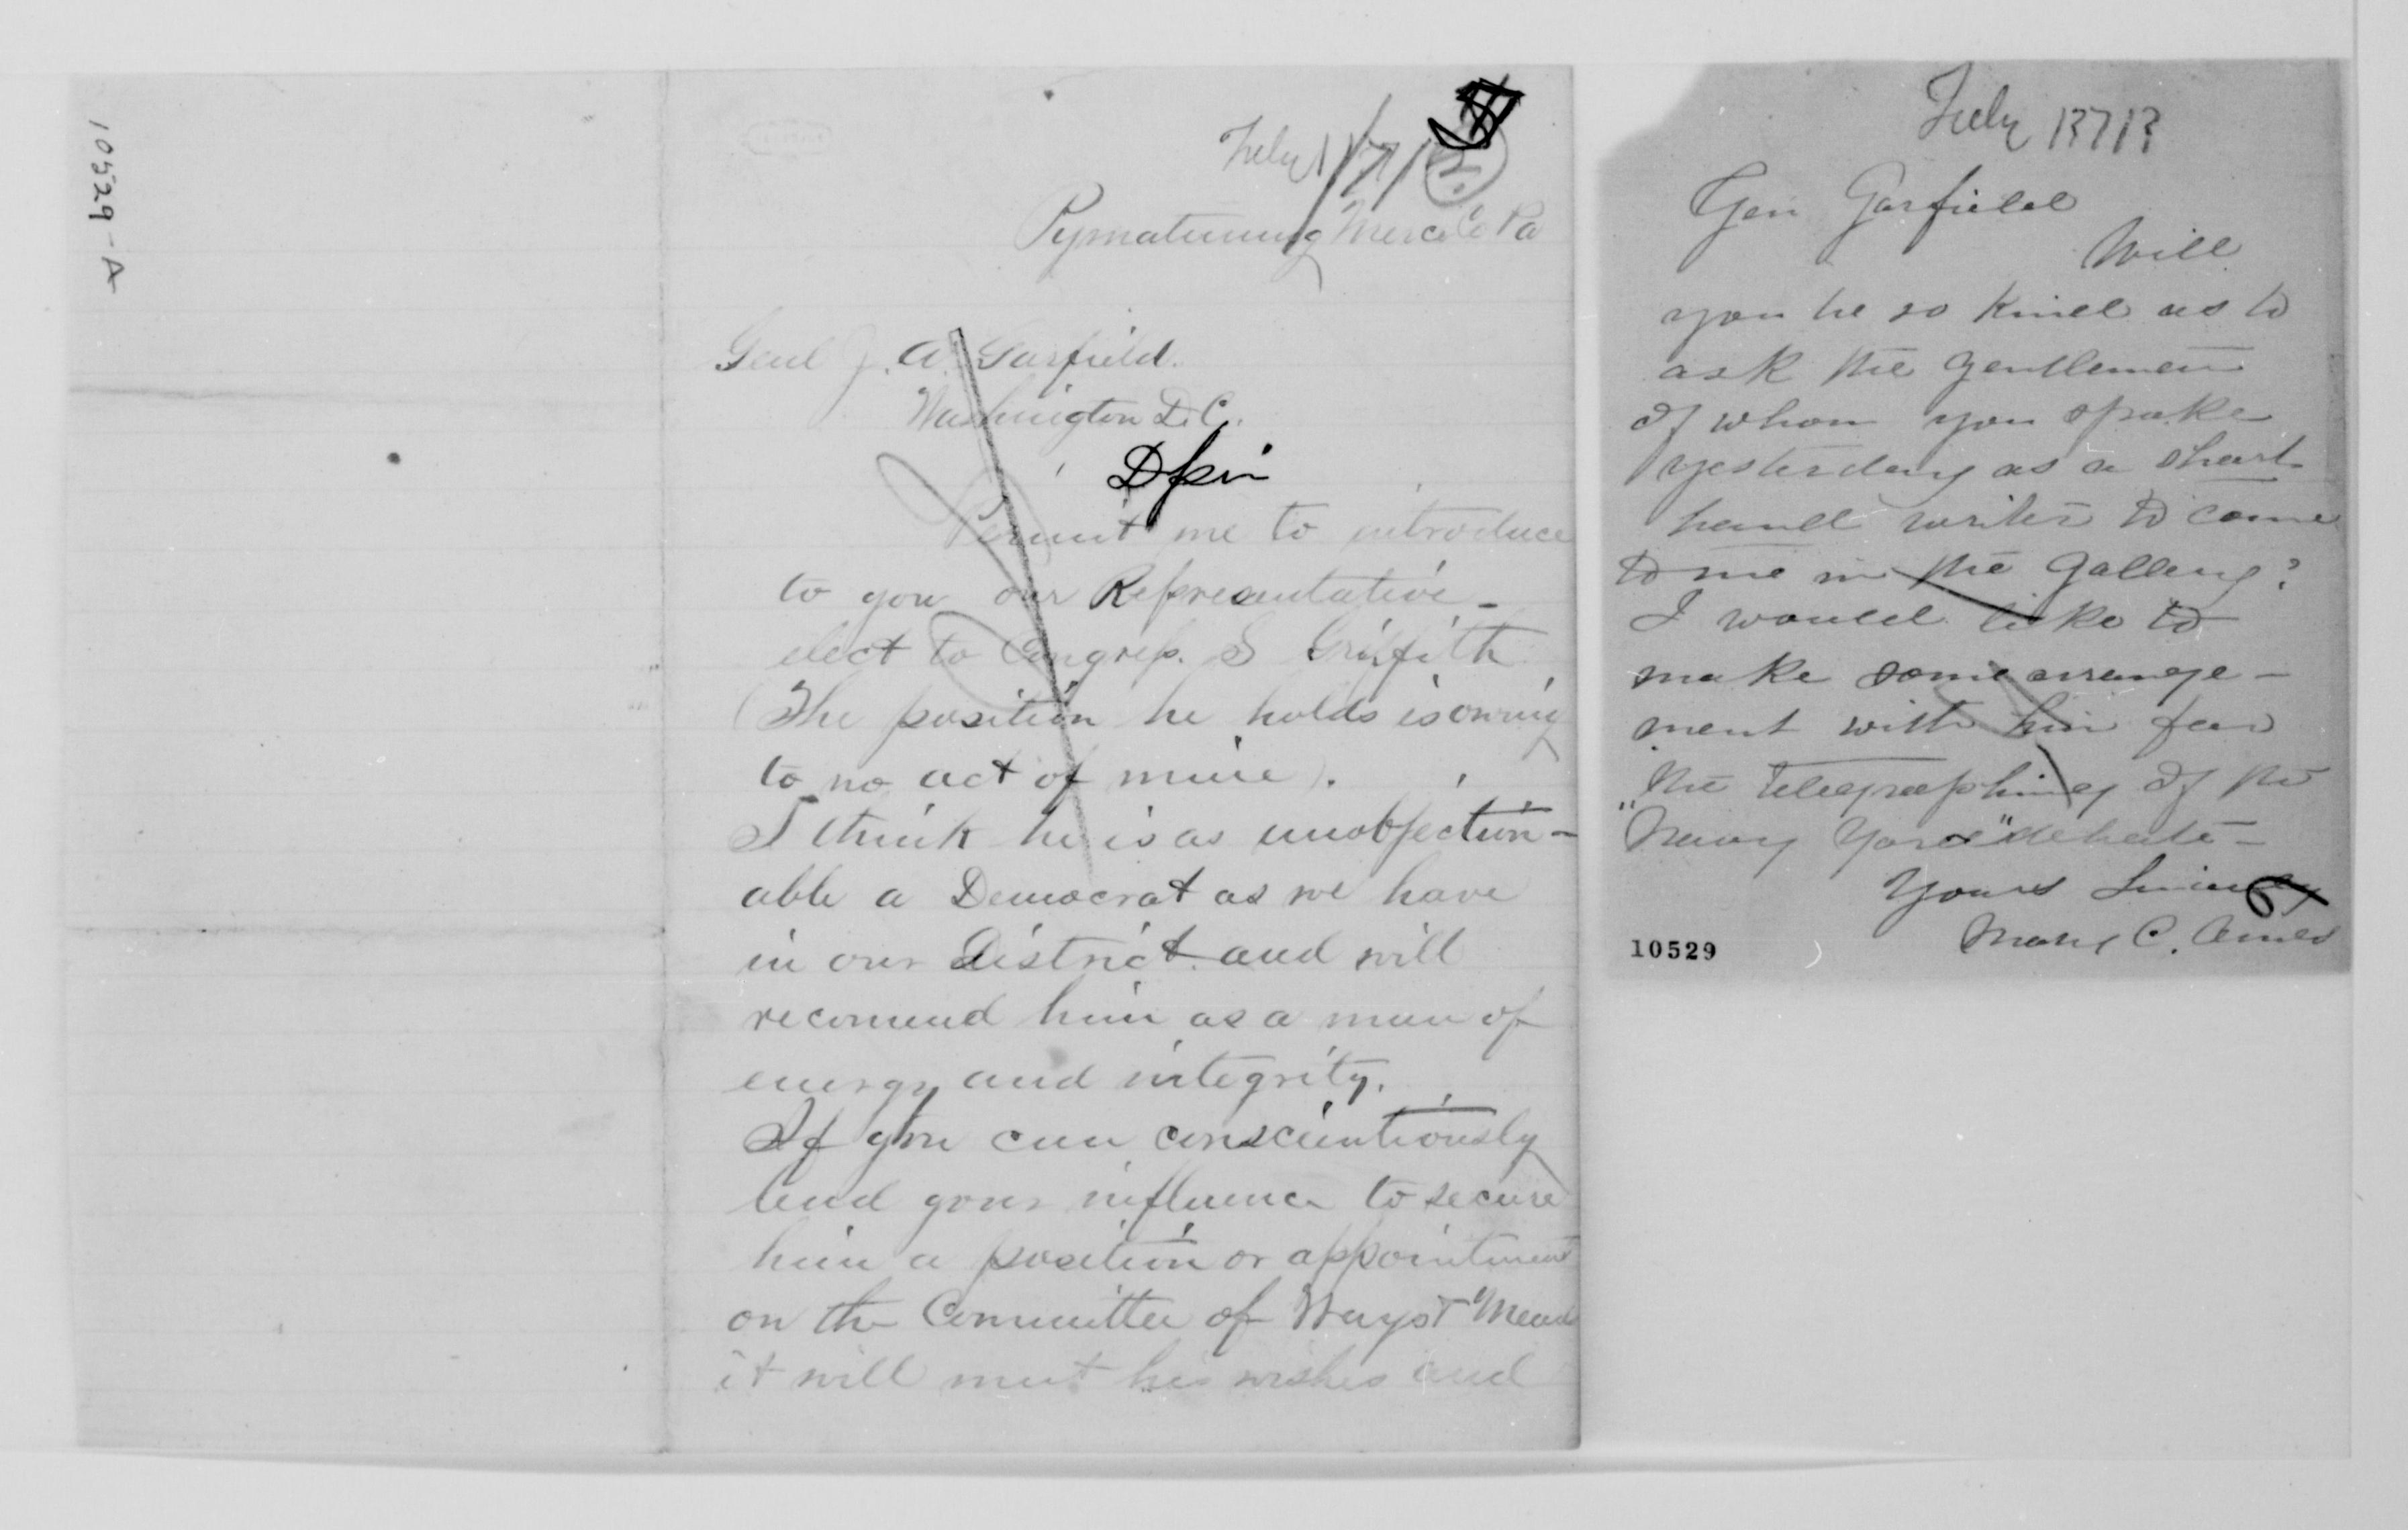 10529-A
July 1/71
Pymatuning Merc Co Pa
Genl J. A. Garfield.
Washington D.C.
D Sir
Permit me to introduce
to you our Representative-
elect to Congress. S Griffith
(The position he holds is owing
to no act of mine).
I think he is as unobjection-
able a Democrat as we have
in our District and will
recomend him as a man of
energy and integrity.
If you can conscientiously
lend your influence to secure
him a position or appointment
on the Committee of Ways & Means
it will meet his wishes and
July
Gen Garfield
Will
you be so kind as to
ask the gentleman
of whom you spoke
yesterday as a short
hand writer to come
to me in the Gallery?
I would like to
make some arrange-
ment with him for
the telegraphing of the
"Navy Yard" debate-
Yours Sincerely
Mary C. Ames
10529